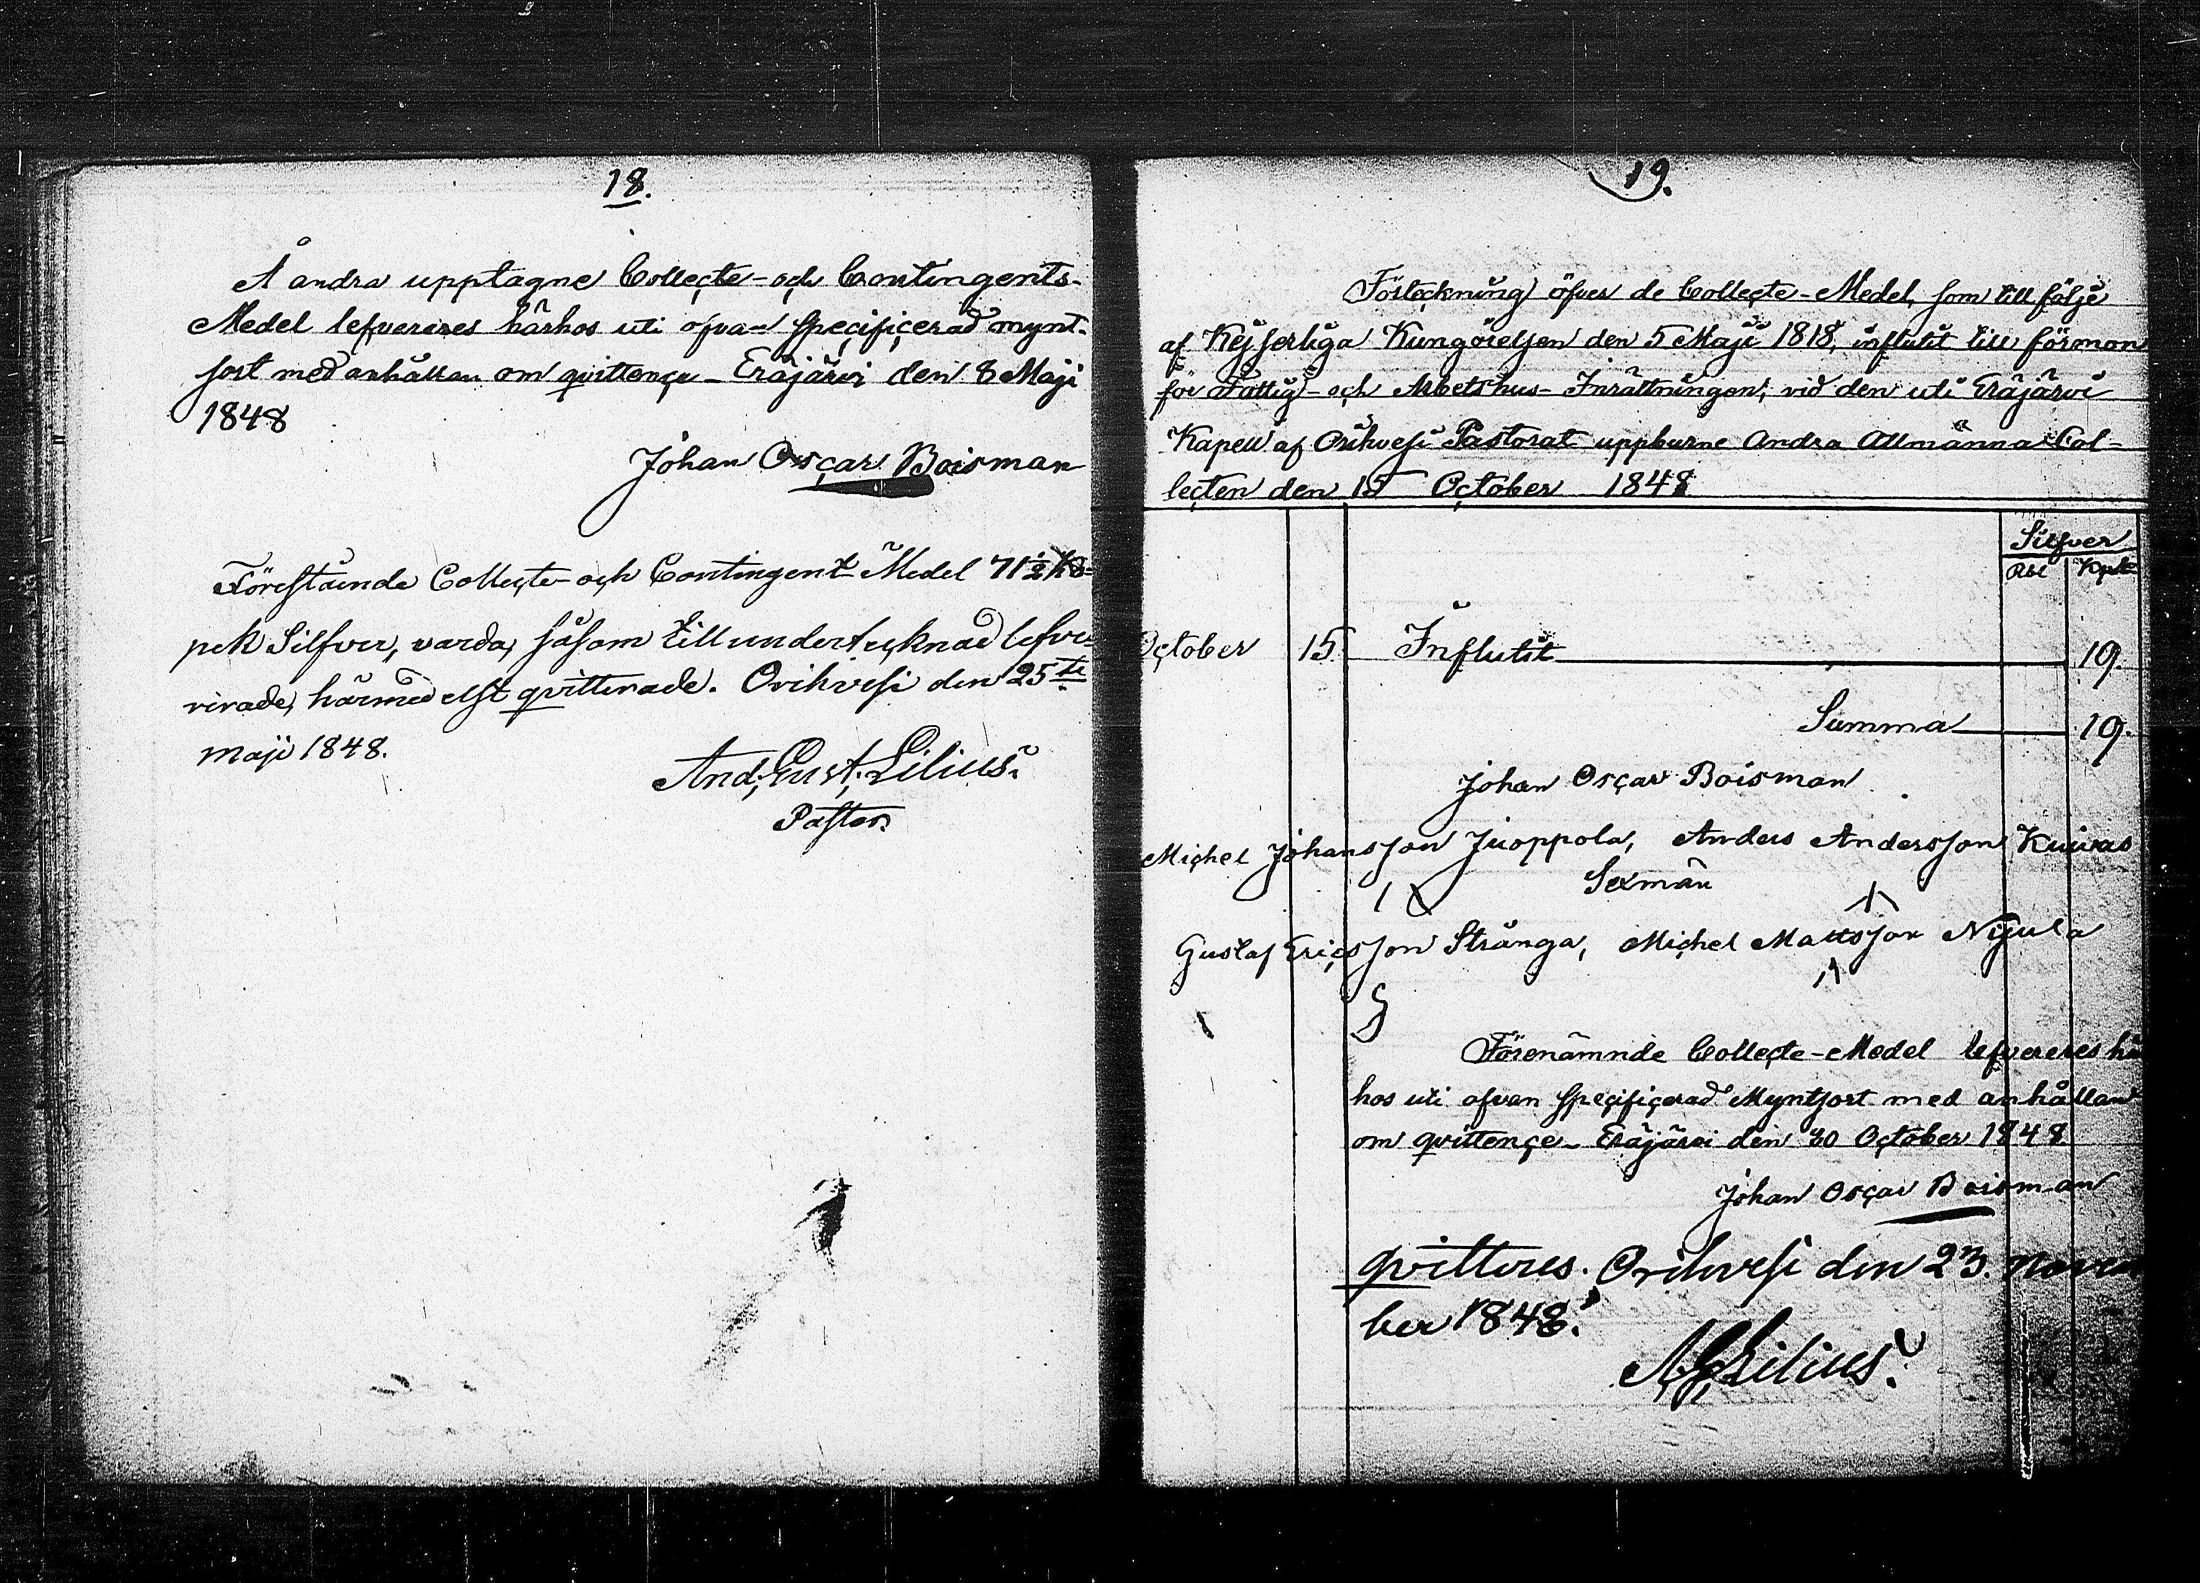 18.
Å andra upptagne Collecte- och Contingents-
Medel lefvereres härhos uti ofvan specificerad mynt-
sort med anhållan om qvittence - Eräjärvi den 8 Maji
1848
Johan Oscar Boisman
Förestående Collecte- och Contingent Medel 71 1/2 Ko-
pek Silfver, varda, såsom till undertecknad lefve-
rerade, härmedelst qvitterade. Orihvesi den 25te
Maji 1848.
And; Gust; Lilius.
Pastor.
19.
Förteckning öfver de Collecte-Medel, som till följe
af Kejserliga Kungörelsen den 5 Maji 1818, influtit till förmon
för Fattig- och Arbetshus-Inrättningen, vid den uti Eräjärvi
Kapell af Orihvesi Pastorat uppburne Andra Allmänna Col-
lecten den 15 October 1848
Silfver
Rbl Kpk
October 15. Influtit 19.
Summa 19.
Johan Oscar Boisman
Michel Johansson Juoppola, Anders Andersson Kuivas
Sexmän
Gustaf Ericsson Stränga, Michel Mattsson Nigula
Förenämnde Collecte-Medel lefvereres här
hos uti ofvan specificerad Myntsort med anhållan
om qvittence - Eräjärvi den 30 October 1848
Johan Oscar Boisman
qvitteres. Orihvesi den 23. Novem
ber 1848.
AGLilius.